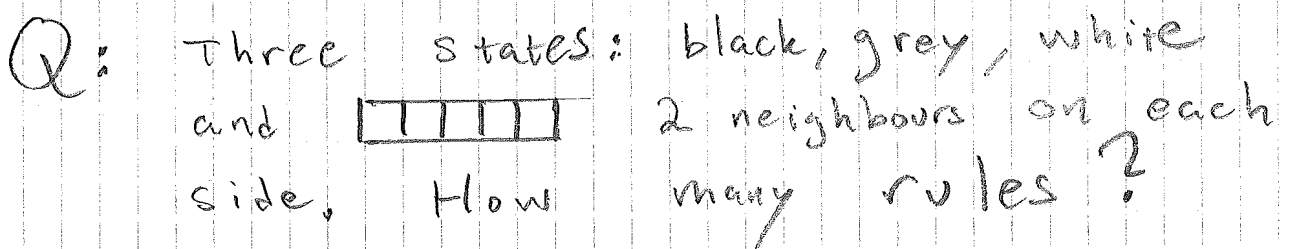 Q: Three states: black, grey, white
and 2 neighbours on each
side. How many rules?